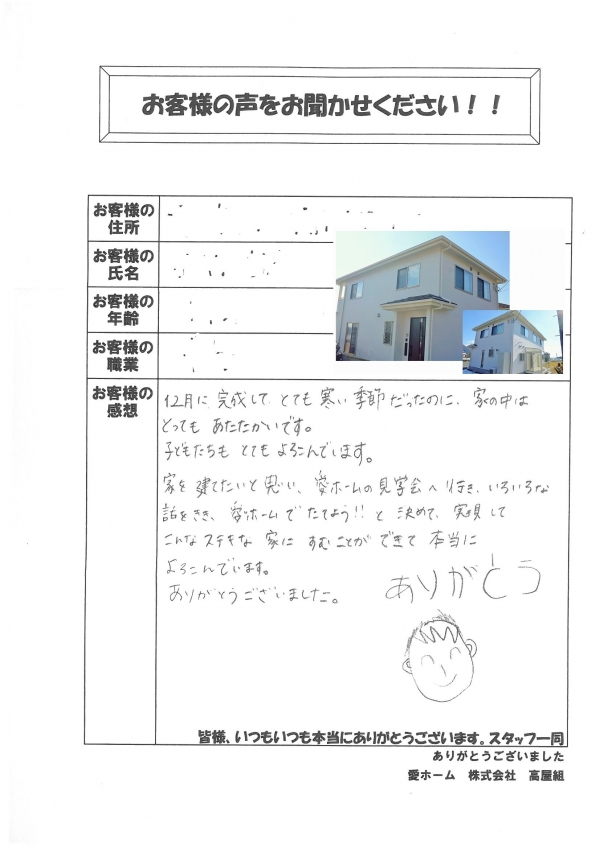 お客様の声をお聞かせください！！
お客様の
住所
お客様の
氏名
お客様の
年齢
お客様の
職業
お客様の
感想
12月に完成して とても寒い季節だったのに、家の中は
とっても あたたかいです。
子どもたちも とてもよろこんでいます。
家を建てたいと思い、愛ホームの見学会へ行き、いろいろな
話をきき、愛ホームでたてよう!!と決めて、実現して
こんなステキな家に すむことができて 本当に
よろこんでいます。
ありがとうございました。
ありがとう
皆様、いつもいつも本当にありがとうございます。スタッフ一同
ありがとうございました
愛ホーム 株式会社 高屋組